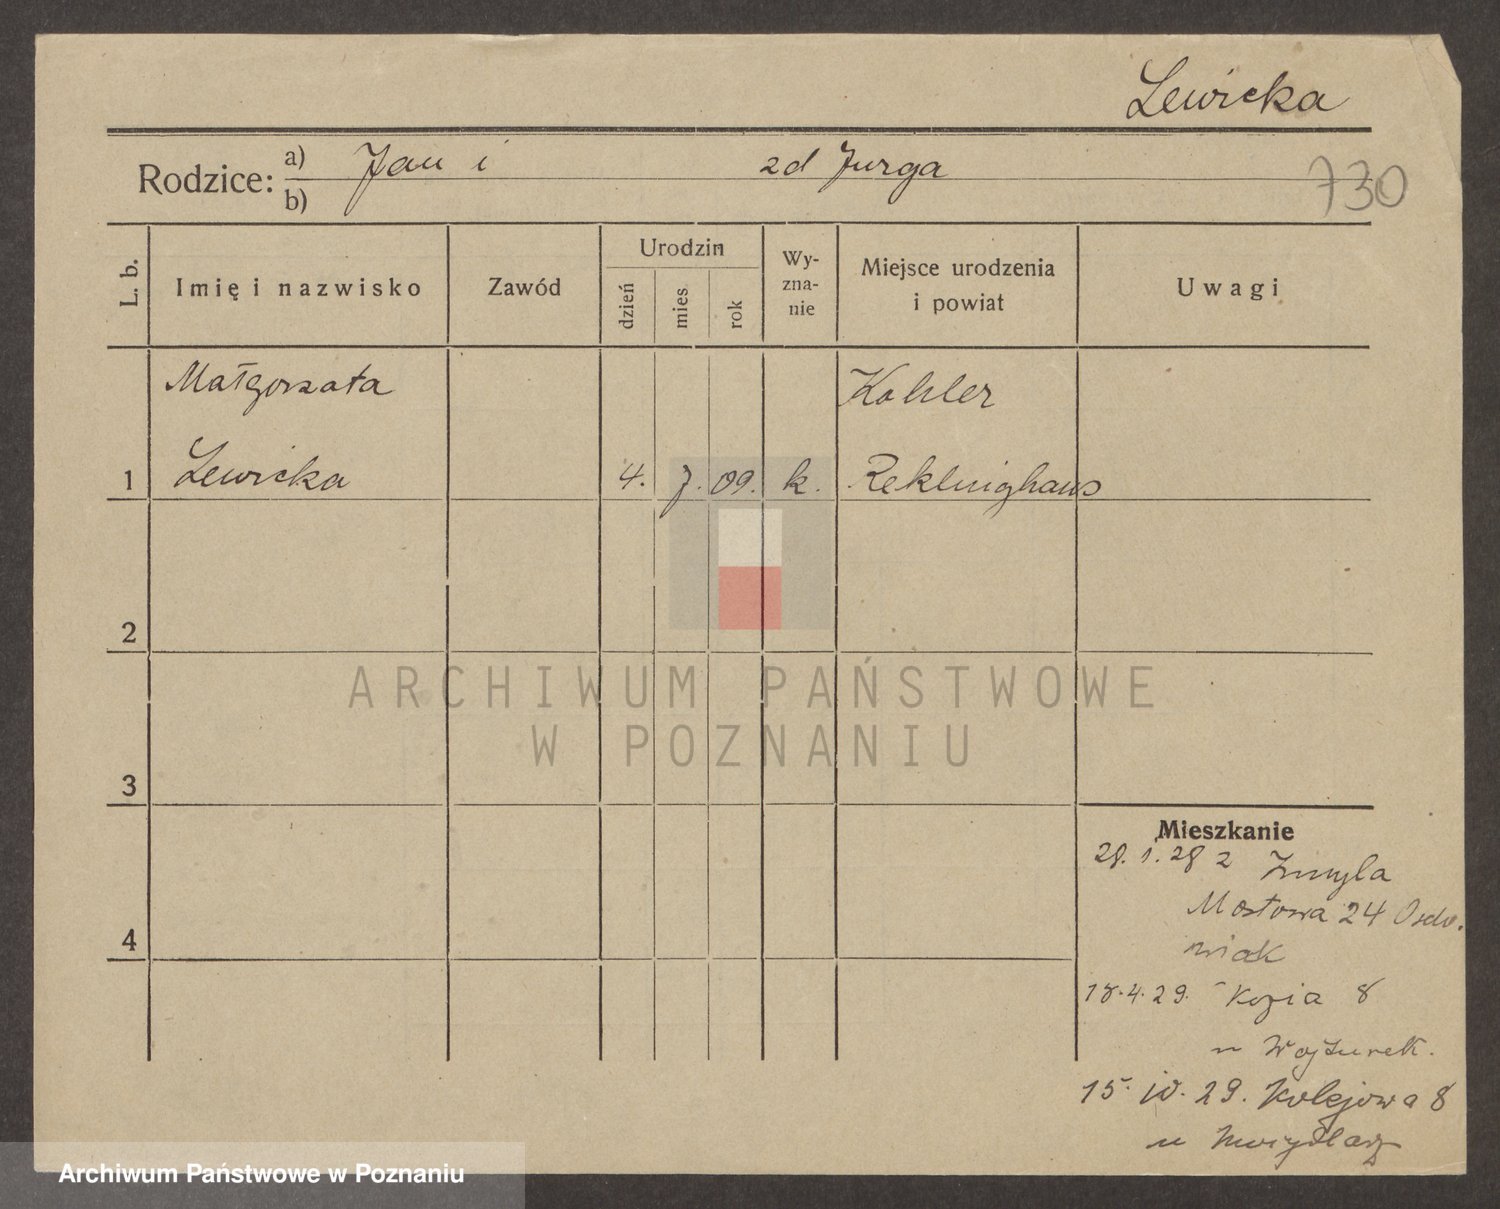 Lewicka
Rodzice: a) Jan i zd Jurga
b)
730
L. b.
Imię i nazwisko
Zawód
Urodzin
dzień
mies
rok
Wy-
zna-
nie
Miejsce urodzenia
i powiat
Uwagi
Małgorzata Kohler
1 Lewicka 4. 7. 09. k. Reklinighaus
2
3
4
Mieszkanie
28. 1. 28 z
Mostowa 24
18.4.29. Kozia 8
u Wojturek.
15. 10. 29. Kolejowa 8
u
ARCHIWUM PAŃSTWOWE
W POZNANIU
Archiwum Państwowe w Poznaniu